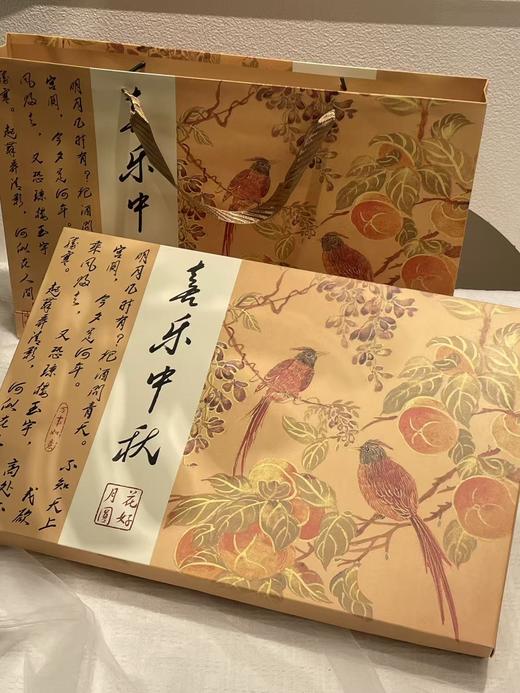 喜乐中
明月几时有？把酒问
宫阙，今夕是何年
风归去，又恐琼楼玉宇
胜寒。起舞弄清影，何似在人间
喜乐中秋
花好
月圓
明月几时有？把酒问青天。不知天上
宫阙，今夕是何年。我欲
乘风归去，又恐琼楼玉宇，高处不
胜寒。起舞弄清影，何似在
万事如意